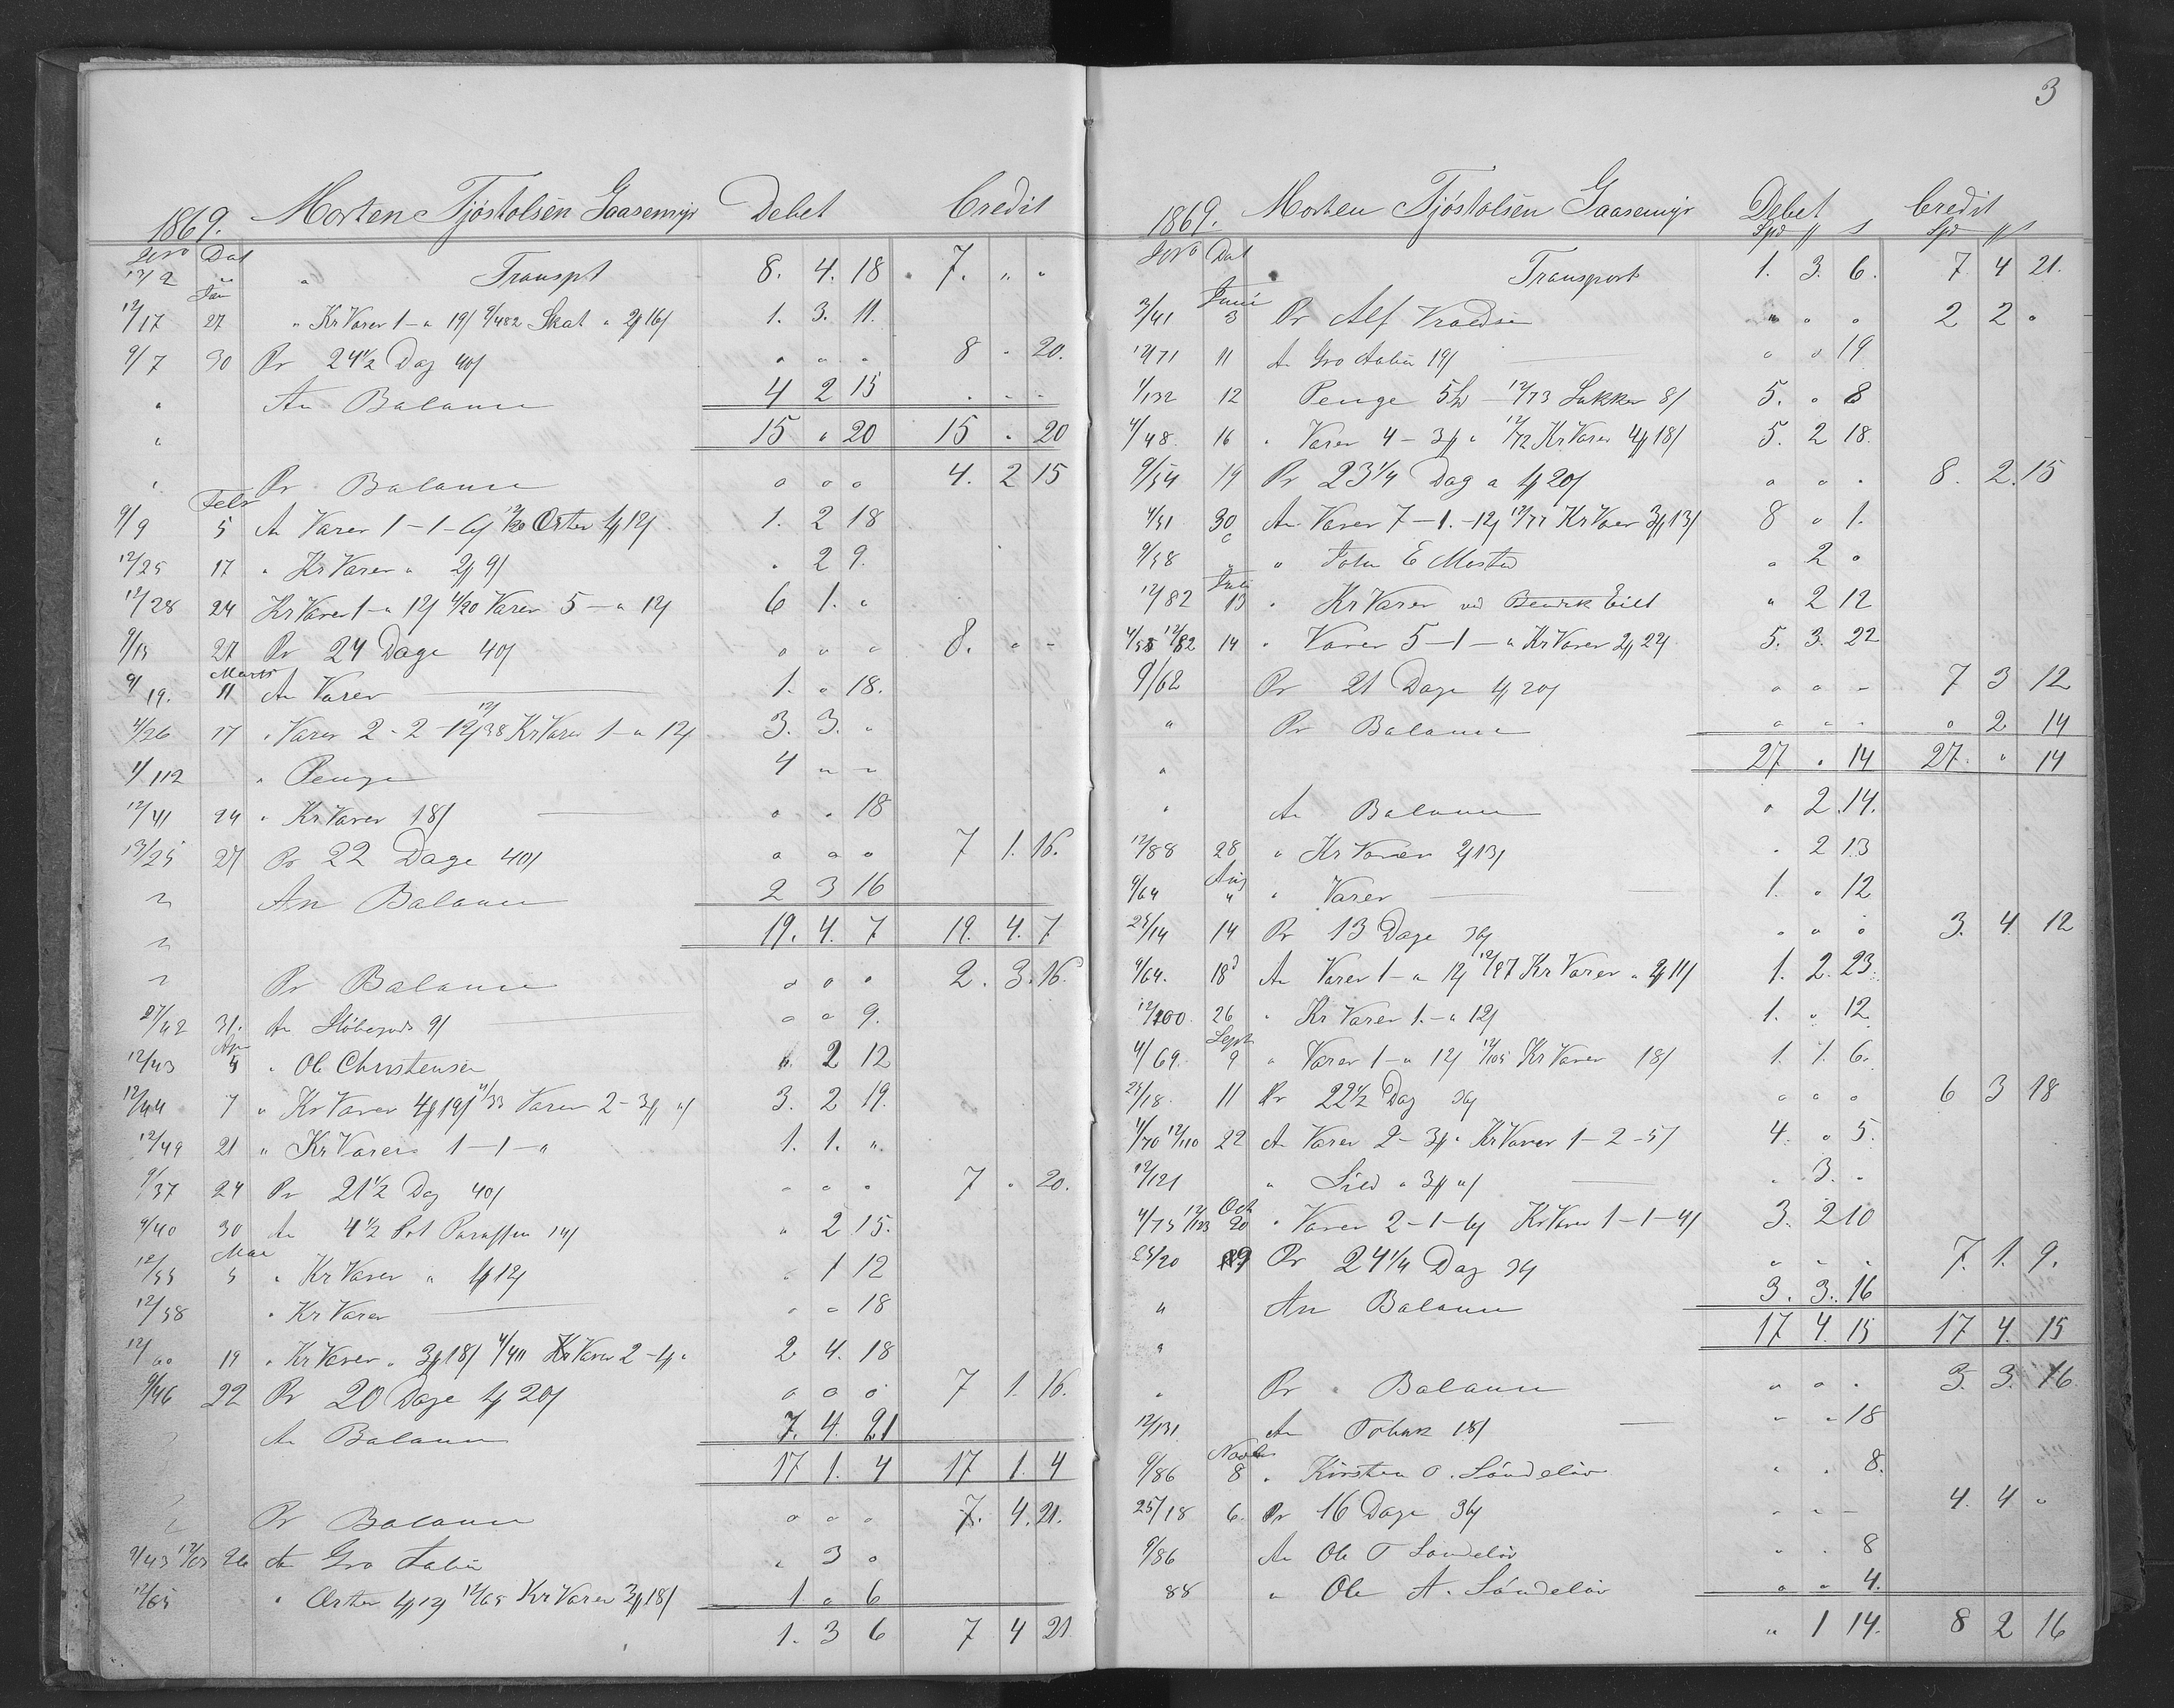 1869. Morten Tjøstolsen Gaasemyr Debet Credit
Dat
12/2 " " Transpt 8. 4. 18 7. " "
Jan
12/17 27 " Kr Varer 1 - " 19/ 9/482 Skat " 2 16/ 1. 3. 11.
9/7 30 Pr 24½ Dag 40/ " " " 8 " 20.
" An Balance 4 2 15 " " "
" 15 " 20 15 " 20
" Pr Balance " " " 4. 2 15
Febr
9/9 5 An Varer 1 - 1 - 6/ 12/20 Erter 1 12/ 1. 2 18
12/25 17 " Kr Varer " 2 9/ " 2 9.
12/28 24 Kr Varer 1 - " 12/ 4/20 Varer 5 - " 12/ 6 1. "
9/15 27 Pr 24 Dage 40/ " " " 8. " "
Marts
9/19. 11 An Varer 1. " 18.
4/26 17 " Varer 2 - 2 - 12/ 12/38 Kr Varer 1 - " 12/ 3. 3. "
1/112 " Penge 4 " "
12/41 24 " Kr Varer 18/ " " 18
13/25 27 Pr 22 Dage 40/ " " " 7 1. 16.
" An Balance 2 3 16
" 19. 4. 7 19. 4. 7
" Pr Balance " " " 2. 3. 16.
27/42 31. An Støbegods 9/ " " 9.
Apr
12/43 4 " Ole Christensen " 2 12
12/44 7 " Kr Varer 4 19/ 4/33 Varer 2 - 3 "/ 3. 2 19.
12/49 21 " Kr Varer 1 - 1 - " 1. 1. "
9/37 24 Pr 21½ Dag 40/ " " " 7 " 20.
9/40 30 An 4½ Pot Paraffin 14/ " 2 15.
Mai
12/55 5 " Kr Varer " 1 12/ " 1 12
12/58 " Kr Varer " " 18
12/60 19 " Kr Varer " 3 18/ 4/40 Varer 2 - 1 " 2 4. 18
9/46 22 Pr 20 Dage 1 20/ " " " 7 1. 16.
" An Balance 7. 4. 21
17 1. 4 17 1. 4
" Pr Balance " " " 7. 4. 21.
9/43 12/63 26 An Gro Aabø " 3 "
12/65 " Erter 1 12/ 12/65 Kr Varer 3 18/ 1 " 6
1. 3 6 7 4 21
3
1869. Morten Tjøstolsen Gaasemyr Debet Credit
Dat Spd s Spd s
Transport 1. 3. 6. 7. 4 21.
Juni
3/41 3 Pr Alf " " " 2 2 "
12/71 11 An Gro Aabø 19/ " " 19
1/132 12 Penge 5 - 12/73 Sukker 8/ 5. " 8
4/48 16 " Varer 4 - 3 " 12/72 Kr Varer 4 18/ 5. 2 18.
9/54 19 Pr 23¼ Dag a 1 20/ " " " 8. 2. 15
4/51 30 An Varer 7 - 1. - 12/ 12/77 Kr Varer 3 13/ 8 " 1.
9/58 " " John E " 2 "
Juli
12/82 13 " Kr Varer ved Eilt " 2 12
4/55 12/82 14 " Varer 5 - 1 - " Kr Varer 2 22/ 5. 3. 22
9/62 Pr 21 Dage 1 20/ " " " 7 3 12
" Pr Balance " " " " 2 14
" 27 " 14 27. " 14
" An Balance " 2. 14.
12/88 28 " Kr Varer 2 13/ " 2 13
Aug
4/64 " " Varer 1. " 12
25/14 14 Pr 13 Dage 36/ " " " 3. 4. 12
4/64. 18 An Varer 1 - " 12/ 12/97 Kr Varer " 2 11/ 1. 2. 23.
12/100 26 " Kr Varer 1. - " 12/ 1. " 12
Sept
4/69. 9 " Varer 1 - " 12/ 12/105 Kr Varer 18/ 1. 1. 6.
25/18. 11 Pr 22½ Dag 36/ " " " 6 3 18
4/70 12/110 22 An Varer 2 - 3 " Kr Varer 1 - 2 - 5/ 4. " 5.
12/121 " Sild " 3 "/ " 3. "
Oct
4/75 12/123 20 " Varer 2 - 1 - 6/ Kr Varer 1 - 1 - 4/ 3. 2 10
25/20 Pr 24¼ Dag 36/ " " " 7. 1. 9.
" An Balance 3. 3. 16
" 17 4. 15 17 4. 15
" Pr Balance " " " 3. 3. 16
12/131 An Tobak 18/ " " 18
Novbr
9/86 8 " Kirsten O. Søndeløv " " 8.
25/18 6. Pr 16 Dage 36/ " " " 4. 4 "
9/86 An Ole T Søndeløv " " 8
88 " Ole A. Søndeløv " " 4.
" 1 14. 8 2 16